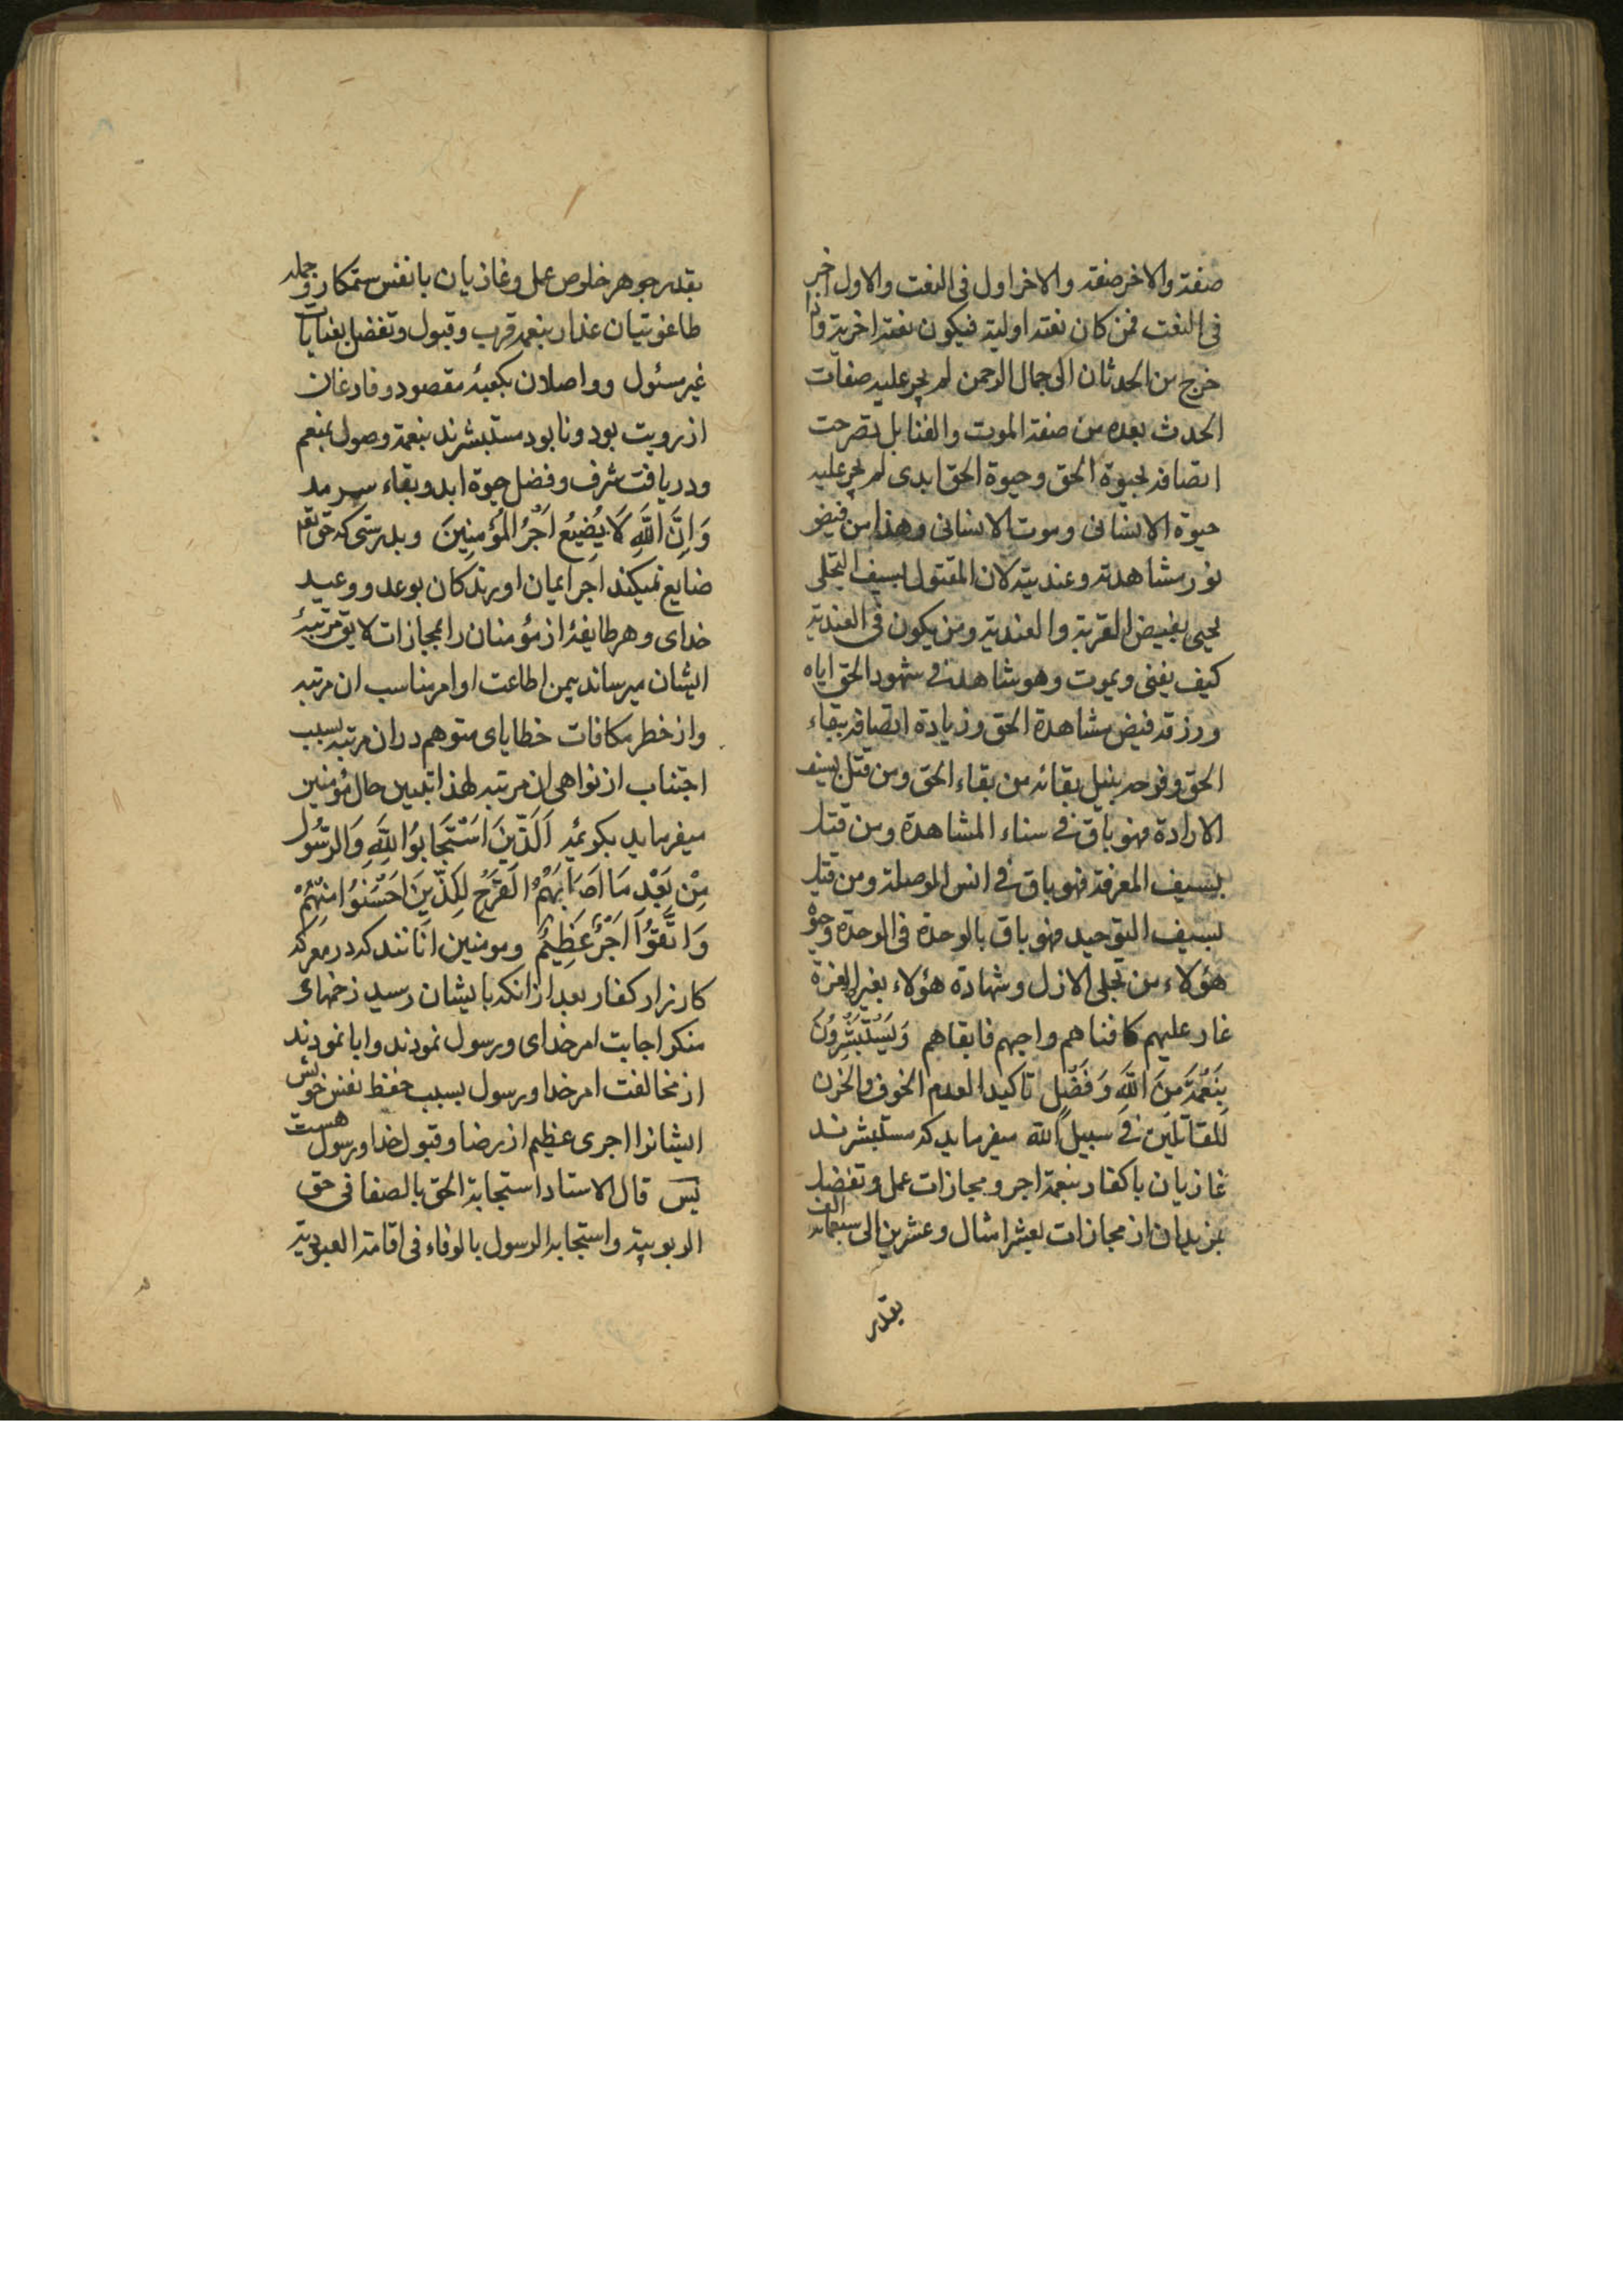 صفته والاخر صفته والاخر اول فى النعت والاول اخر
فى النعت فمن كان نعته اولية فيكون نعته اخرية واذا
خرج من الحدثان الى جمال الرحمن لم يجر عليه صفات
الحدث بعده من صفة الموت والفنا بل
اتصافه بحيوة الحق وحيوة الحق ابدى لم يجر عليه
حيوة الانسانى وموت الانسانى وهذا من فيض
نور مشاهدته وعنديته لان المقتول بسيف التجلى
يحيى بفيض القربة والعندية ومن يكون فى العندية
كيف يفنى ويموت وهو شاهد فى شهود الحق اياه
ورزقه فيض مشاهدة الحق وزيادة اتصافه ببقاء
الحق وفرحه بنيل بقائه من بقاء الحق ومن قتل بسيف
الارادة فهو باق فى سناء المشاهدة ومن قتل
بسيف المعرفة فهو باق فى انس الموصلة ومن قتل
بسيف التوحيد فهو باق بالوحدة فى الوحدة وحيوة
هؤلاء من تجلى الازل وشهادة هؤلاء بغيرة العزة
غار عليهم كافناهم واحبهم فابقاهم وَيَسْتَبْشِرُونَ
بِنِعْمَةٍ مِنَ اللَّهِ وَفَضْلٍ تاكيدا لعدم الخوف والحزن
للمقاتلين فى سبيل الله ميفرمايد كه مستبشرند
غازيان باكفار بنعمة اجر ومجازات عمل وتفضل
بزيدان از مجازات بعشر امثال وعشرين الى سبعمائه الف
بقدر
بقدر جوهر خلوص عمل وغازيان بانفس ستمكار وجمله
طاغوتيان غدار بنعمة قرب وقبول وتفضل بعنايات
غير مسئول وواصلان بكعبهٔ مقصود وفارغان
از رويت بود ونابود مستبشرند بنعمة وصول بمنعم
ودريافت شرف وفضل حيوة ابد وبقاء سرمد
وَاِنَّ اللَّهَ لَا يُضِيعُ اَجْرَ المُؤْمِنِينَ وبدرستى كه حق تعم
ضايع نميكند اجر ايمان اورندكان بوعد ووعيد
خداى وهر طايفهٔ از مؤمنان را بمجازات لايق مرتبهٔ
ايشان ميرساند بيمن اطاعت اوامر مناسب ان مرتبه
واز خطر مكافات خطاياى متوهم دران مرتبه بسبب
اجتناب از نواهى ان مرتبه لهذا تبيين حال مؤمنين
ميفرمايد بكوئيد اَلَّذِينَ اسْتَجَابُوا لِلَّهِ وَالرَّسُولِ
مِنْ بَعْدِ مَا اَصَابَهُمُ القَرْحُ لِلَّذِينَ اَحْسَنُوا مِنْهُمْ
وَاتَّقَوْا اَجْرٌ عَظِيمٌ ومومنين انانند كه در معركه
كارزار كفار بعد از انكه بايشان رسيد زخمهاى
منكر اجابت امر خداى ورسول نمودند وابا نمودند
از مخالفت امر خدا ورسول بسبب حفظ نفس خويش
ايشانرا اجرى عظيم از رضا وقبول خدا ورسول هست
پس قال الاستاد استجابة الحق بالصفا فى حق
الربوبية واستجابه الرسول بالوفاء فى اقامة العبودية